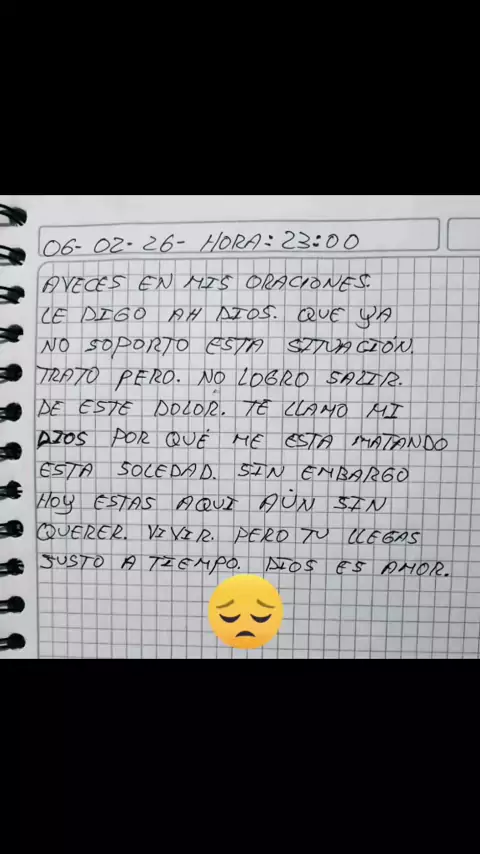 06-02-26- HORA: 23:00
AVECES EN MIS ORACIONES.
LE DIGO AH DIOS. QUE YA
NO SOPORTO ESTA SITUACIÓN.
TRATO PERO. NO LOGRO SALIR.
DE ESTE DOLOR. TE LLAMO MI
DIOS POR QUÉ ME ESTA MATANDO
ESTA SOLEDAD. SIN EMBARGO
HOY ESTAS AQUI AÚN SIN
QUERER. VIVIR. PERO TU LLEGAS
JUSTO A TIEMPO. DIOS ES AMOR.